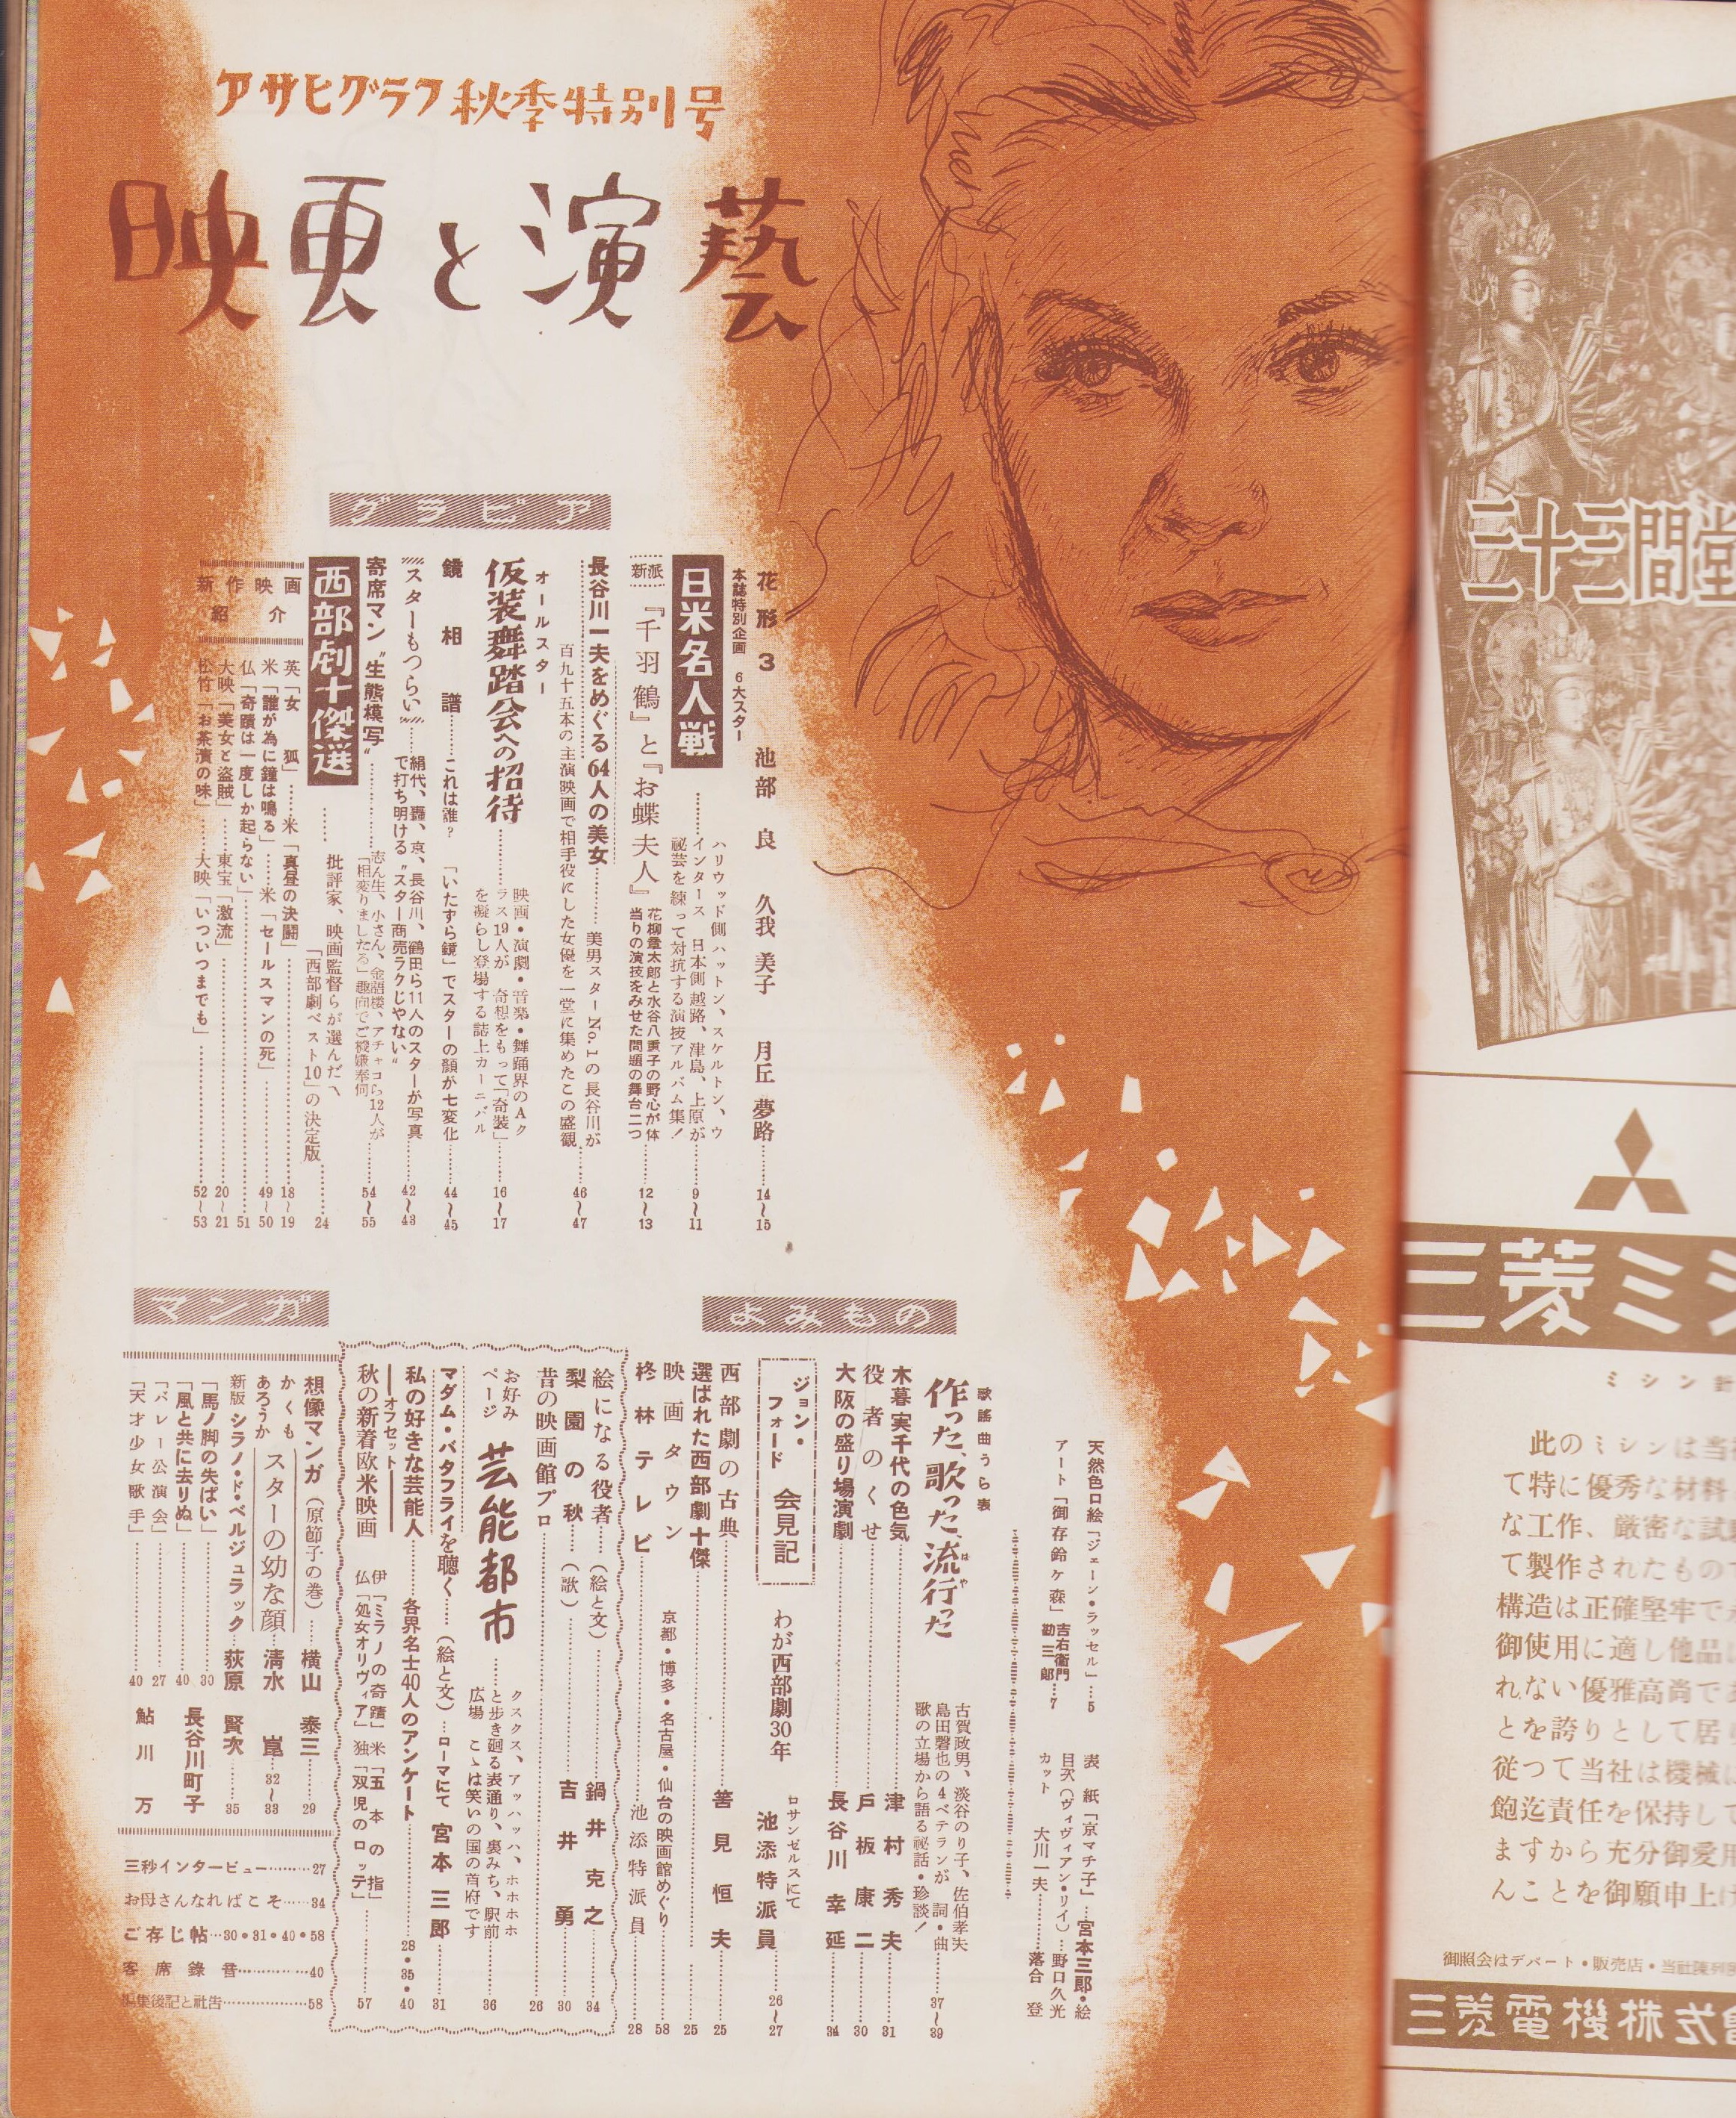 アサヒグラフ秋季特別号
映画と演藝
グラビア
花形3 池部良 久我美子 月丘夢路……14〜15
本誌特別企画 6大スター
日米名人戦……
ハリウッド側ハットン、スケルトン、ウ
インタース 日本側越路、津島、上原が
秘芸を練って対抗する演技アルバム集!
9〜11
新派『千羽鶴』と『お蝶夫人』
花柳章太郎と水谷八重子の野心が体
当りの演技をみせた問題の舞台二つ
12〜13
長谷川一夫をめぐる64人の美女……美男スターNo.1の長谷川が
百九十五本の主演映画で相手役にした女優を一堂に集めたこの盛観
46〜47
オールスター
仮装舞踏会への招待……
映画・演劇・音楽・舞踊界のAク
ラス19人が 奇想をもって「奇装」
を凝らし登場する誌上カーニバル
16〜17
鏡相譜……これは誰? 「いたずら鏡」でスターの顔が七変化……44〜45
〃スターもつらい〃……
絹代、轟、京、長谷川、鶴田ら11人のスターが写真
で打ち明ける〝スター商売ラクじやない〟
42〜43
寄席マン〝生態模写〟……
志ん生、小さん、金語楼、アチャコら12人が
「相変りました​る」趣向でご機嫌奉伺
54〜55
西部劇十傑選……
批評家、映画監督らが選んだ
「西部劇ベスト10」の決定版
24
新作映画紹介
英「女狐」……米「真昼の決闘」……18〜19
米「誰が為に鐘は鳴る」……米「セールスマンの死」……49〜50
仏「奇蹟は一度しか起らない」……51
大映「美女と盗賊」……東宝「激流」……20〜21
松竹「お茶漬の味」……大映「いついつまでも」……52〜53
天然色口絵「ジェーン・ラッセル」…5
アート「御存鈴ケ森」吉右衛門 勘三郎…7
表紙「京マチ子」…宮本三郎・絵
目次(ヴィヴィアン・リイ)…野口久光
カット 大川一夫……落合登
よみもの
歌謡曲うら表
作った、歌った、流行だ
はや
古賀政男、淡谷のり子、佐伯孝夫
島田磬也の4ベテランが 詞・曲
歌の立場から語る秘話・珍談!
37〜39
木暮実千代の色気……津村秀夫……31
役者のくせ……戸板康二……30
大阪の盛り場演劇……長谷川幸延……34
ジョン・フォード 会見記 わが西部劇30年 ロサンゼルスにて 池添特派員……26〜27
西部劇の古典……筈見恒夫……25
選ばれた西部劇十傑……25
映画タウン 京都・博多・名古屋・仙台の映画館めぐり……58
柊林テレビ……池添特派員……28
絵になる役者……(絵と文)……鍋井克之……34
梨園の秋……(歌)……吉井勇……30
昔の映画館プロ……26
お好みページ 芸能都市……
クスクス、アッハッハ、ホホホホ
と歩き廻る表通り、裏みち、駅前
広場 こゝは笑いの国の首府です
36
マダム・バタフライを聴く……(絵と文)…ローマにて 宮本三郎……31
私の好きな芸能人……各界名士40人のアンケート……28・35・40
オフセット
秋の新着欧米映画
伊「ミラノの奇蹟」米「五本の指」
仏「処女オリヴィア」独「双児のロッテ」
57
マンガ
想像マンガ(原節子の巻)……横山泰三……29
かくもあろうか スターの幼な顔 清水崑…32〜33
新版 シラノ・ド・ベルジュラック…荻原賢次……35
「馬ノ脚の失ぱい」……30
「風と共に去りぬ」……40
長谷川町子
「バレー公演会」……27
「天才少女歌手」……40
鮎川万
三秒インタービュー……27
お母さんなればこそ……34
ご存じ帖…30・31・40・58
客席録音……40
編集後記と社告……58
三十三間堂
三菱ミシ
ミシン針
此のミシンは当
て特に優秀な材料
な工作、厳密な試
て製作されたもので
構造は正確堅牢で
御使用に適し他品
れない優雅高尚で
とを誇りとして居
従つて当社は機械
飽迄責任を保持して
ますから充分御愛用
んことを御願申上げ
御照会はデパート・販売店・当社陳列所
三菱電機株式會